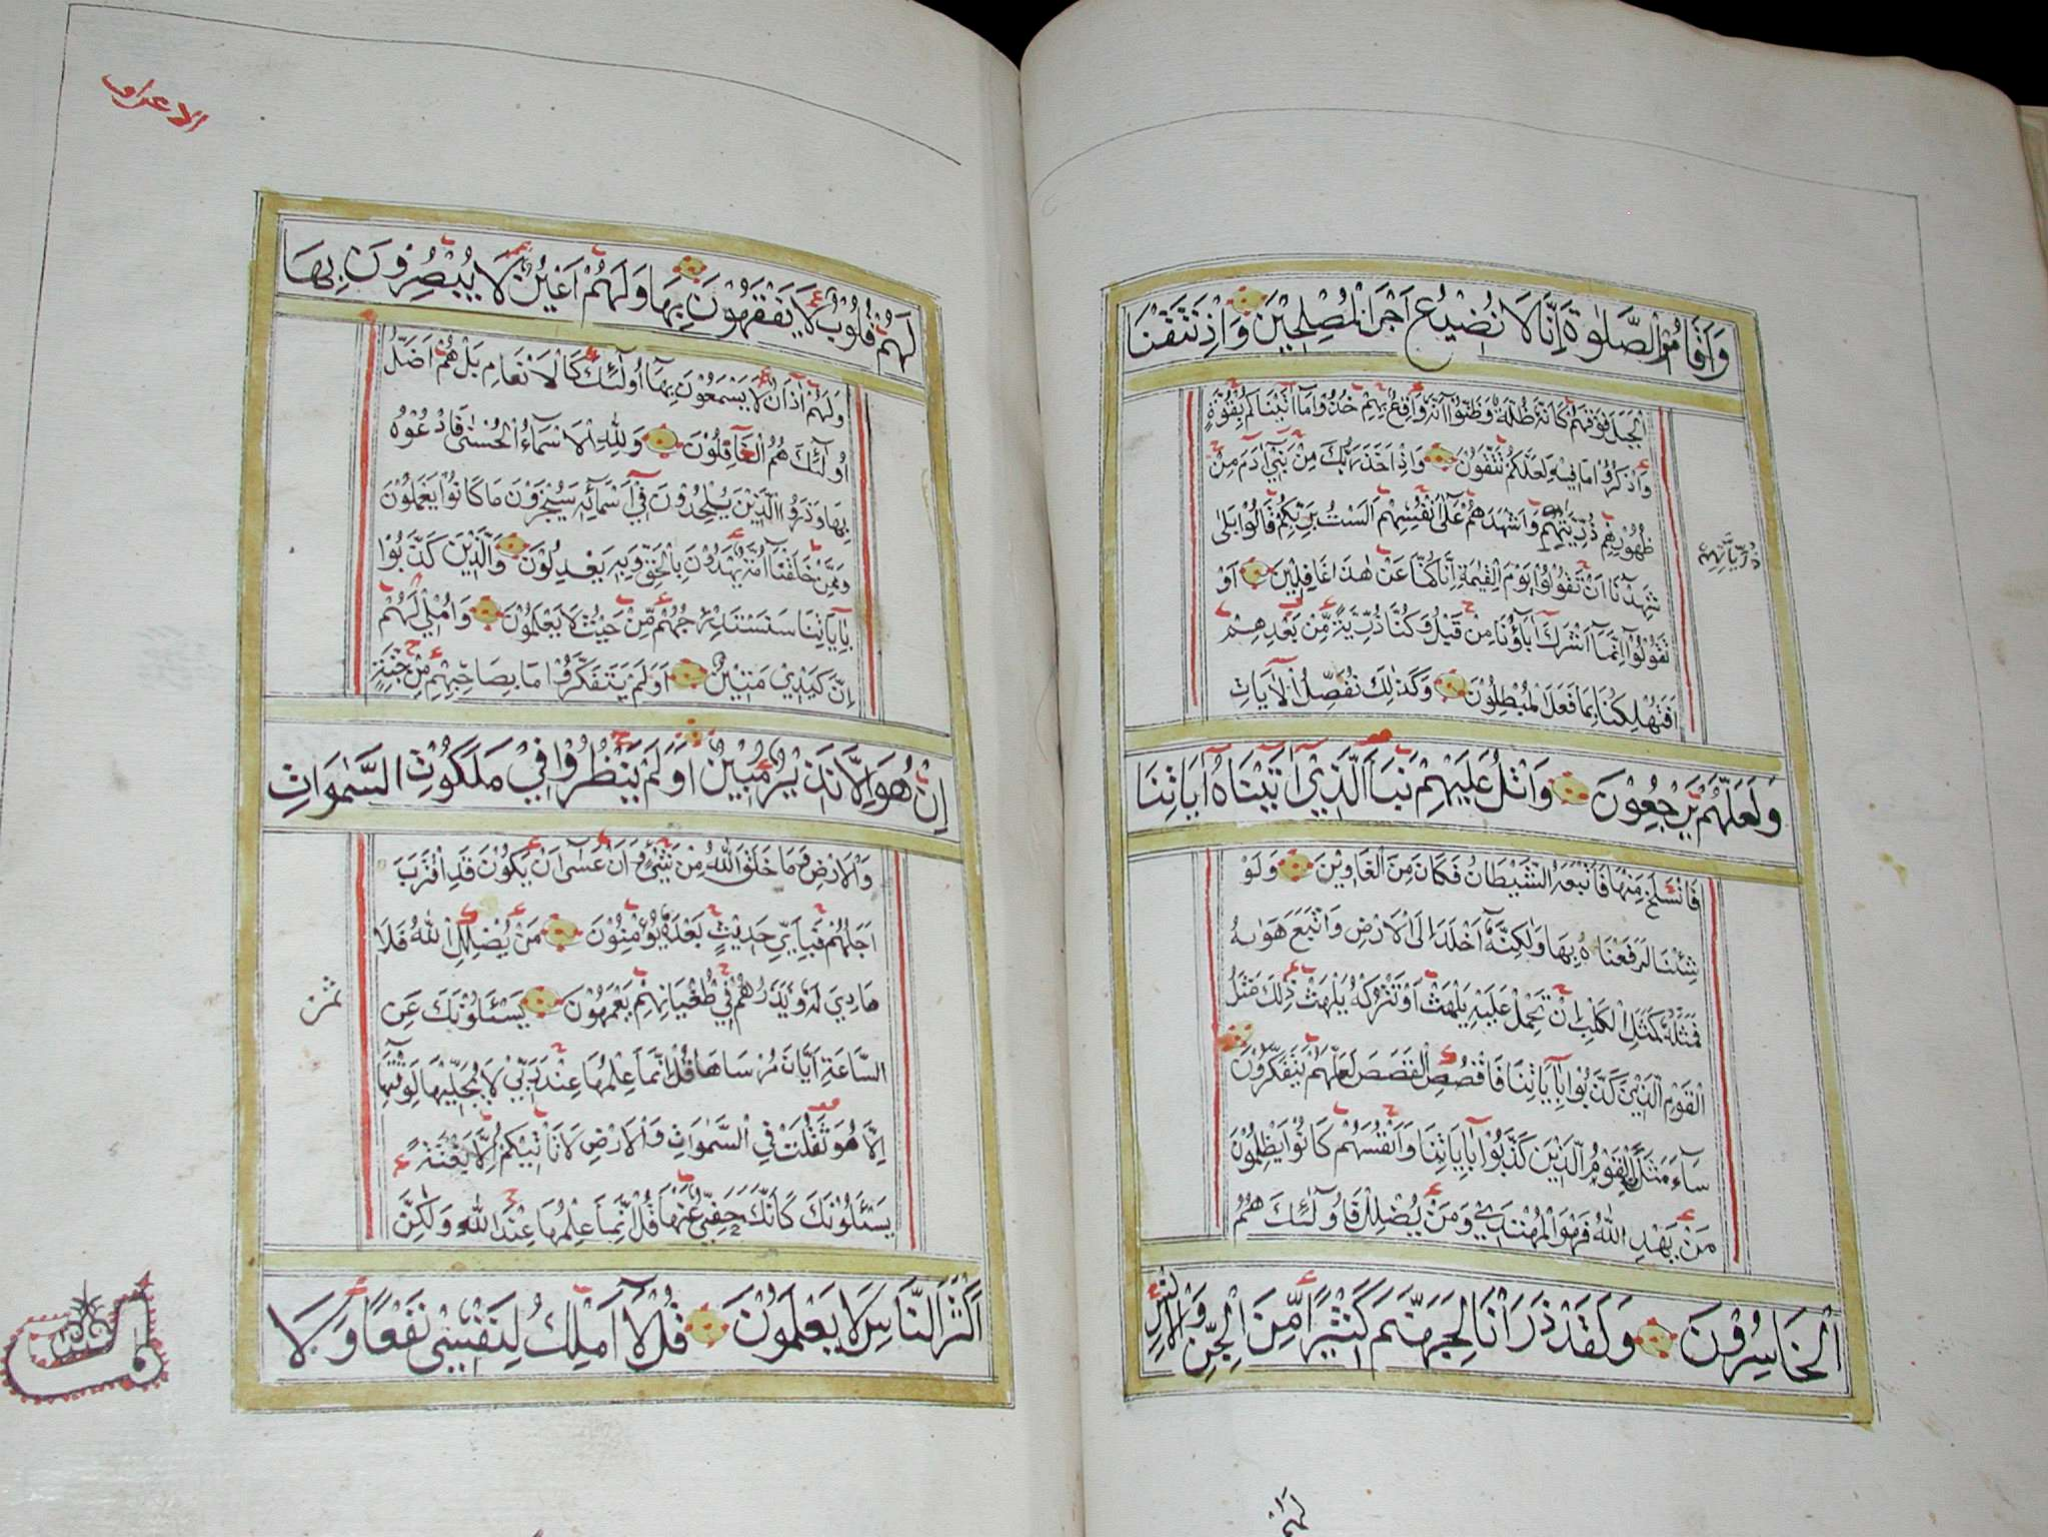 وَاَقَامُوا الصَّلٰوةَ اِنَّا لَا نُضِيْعُ اَجْرَ الْمُصْلِحِيْنَ وَاِذْ نَتَقْنَا
الْجَبَلَ فَوْقَهُمْ كَاَنَّهُ ظُلَّةٌ وَظَنُّوْا اَنَّهُ وَاقِعٌ بِهِمْ خُذُوْا مَا آتَيْنَاكُمْ بِقُوَّةٍ
وَاذْكُرُوْا مَا فِيْهِ لَعَلَّكُمْ تَتَّقُوْنَ وَاِذْ اَخَذَ رَبُّكَ مِنْ بَنِيْ آدَمَ مِنْ
ظُهُوْرِهِمْ ذُرِّيَّتَهُمْ وَاَشْهَدَهُمْ عَلٰى اَنْفُسِهِمْ اَلَسْتُ بِرَبِّكُمْ قَالُوْا بَلٰى
ذُرِّيَّاتِهِمْ
شَهِدْنَا اَنْ تَقُوْلُوْا يَوْمَ الْقِيٰمَةِ اِنَّا كُنَّا عَنْ هٰذَا غَافِلِيْنَ اَوْ
تَقُوْلُوْا اِنَّمَا اَشْرَكَ آبَاؤُنَا مِنْ قَبْلُ وَكُنَّا ذُرِّيَّةً مِّنْ بَعْدِهِمْ
اَفَتُهْلِكُنَا بِمَا فَعَلَ الْمُبْطِلُوْنَ وَكَذٰلِكَ نُفَصِّلُ الْاٰيَاتِ
وَلَعَلَّهُمْ يَرْجِعُوْنَ وَاتْلُ عَلَيْهِمْ نَبَاَ الَّذِيْ آتَيْنَاهُ آيَاتِنَا
فَانْسَلَخَ مِنْهَا فَاَتْبَعَهُ الشَّيْطَانُ فَكَانَ مِنَ الْغَاوِيْنَ وَلَوْ
شِئْنَا لَرَفَعْنَاهُ بِهَا وَلٰكِنَّهُ اَخْلَدَ اِلَى الْاَرْضِ وَاتَّبَعَ هَوٰىهُ
فَمَثَلُهُ كَمَثَلِ الْكَلْبِ اِنْ تَحْمِلْ عَلَيْهِ يَلْهَثْ اَوْ تَتْرُكْهُ يَلْهَثْ ذٰلِكَ مَثَلُ
الْقَوْمِ الَّذِيْنَ كَذَّبُوْا بِآيَاتِنَا فَاقْصُصِ الْقَصَصَ لَعَلَّهُمْ يَتَفَكَّرُوْنَ
سَاءَ مَثَلًا الْقَوْمُ الَّذِيْنَ كَذَّبُوْا بِآيَاتِنَا وَاَنْفُسَهُمْ كَانُوْا يَظْلِمُوْنَ
مَنْ يَهْدِ اللّٰهُ فَهُوَ الْمُهْتَدِيْ وَمَنْ يُضْلِلْ فَاُولٰئِكَ هُمُ
الْخَاسِرُوْنَ وَلَقَدْ ذَرَاْنَا لِجَهَنَّمَ كَثِيْرًا مِّنَ الْجِنِّ وَالْاِنْسِ
لَهُمْ
الاعراف
لَهُمْ قُلُوْبٌ لَا يَفْقَهُوْنَ بِهَا وَلَهُمْ اَعْيُنٌ لَا يُبْصِرُوْنَ بِهَا
وَلَهُمْ آذَانٌ لَا يَسْمَعُوْنَ بِهَا اُولٰئِكَ كَالْاَنْعَامِ بَلْ هُمْ اَضَلُّ
اُولٰئِكَ هُمُ الْغَافِلُوْنَ وَلِلّٰهِ الْاَسْمَاءُ الْحُسْنٰى فَادْعُوْهُ
بِهَا وَذَرُوا الَّذِيْنَ يُلْحِدُوْنَ فِيْ اَسْمَائِهِ سَيُجْزَوْنَ مَا كَانُوْا يَعْمَلُوْنَ
وَمِمَّنْ خَلَقْنَا اُمَّةٌ يَهْدُوْنَ بِالْحَقِّ وَبِهِ يَعْدِلُوْنَ وَالَّذِيْنَ كَذَّبُوْا
بِآيَاتِنَا سَنَسْتَدْرِجُهُمْ مِّنْ حَيْثُ لَا يَعْلَمُوْنَ وَاُمْلِيْ لَهُمْ
اِنَّ كَيْدِيْ مَتِيْنٌ اَوَلَمْ يَتَفَكَّرُوْا مَا بِصَاحِبِهِمْ مِنْ جِنَّةٍ
اِنْ هُوَ اِلَّا نَذِيْرٌ مُّبِيْنٌ اَوَلَمْ يَنْظُرُوْا فِيْ مَلَكُوْتِ السَّمٰوَاتِ
وَالْاَرْضِ وَمَا خَلَقَ اللّٰهُ مِنْ شَيْءٍ وَاَنْ عَسٰى اَنْ يَكُوْنَ قَدِ اقْتَرَبَ
اَجَلُهُمْ فَبِاَيِّ حَدِيْثٍ بَعْدَهُ يُؤْمِنُوْنَ مَنْ يُضْلِلِ اللّٰهُ فَلَا
هَادِيَ لَهُ وَيَذَرُهُمْ فِيْ طُغْيَانِهِمْ يَعْمَهُوْنَ يَسْئَلُوْنَكَ عَنِ
ثمن
السَّاعَةِ اَيَّانَ مُرْسَاهَا قُلْ اِنَّمَا عِلْمُهَا عِنْدَ رَبِّيْ لَا يُجَلِّيْهَا لِوَقْتِهَا
اِلَّا هُوَ ثَقُلَتْ فِي السَّمٰوَاتِ وَالْاَرْضِ لَا تَاْتِيْكُمْ اِلَّا بَغْتَةً
يَسْئَلُوْنَكَ كَاَنَّكَ حَفِيٌّ عَنْهَا قُلْ اِنَّمَا عِلْمُهَا عِنْدَ اللّٰهِ وَلٰكِنَّ
اَكْثَرَ النَّاسِ لَا يَعْلَمُوْنَ قُلْ لَا اَمْلِكُ لِنَفْسِيْ نَفْعًا وَلَا